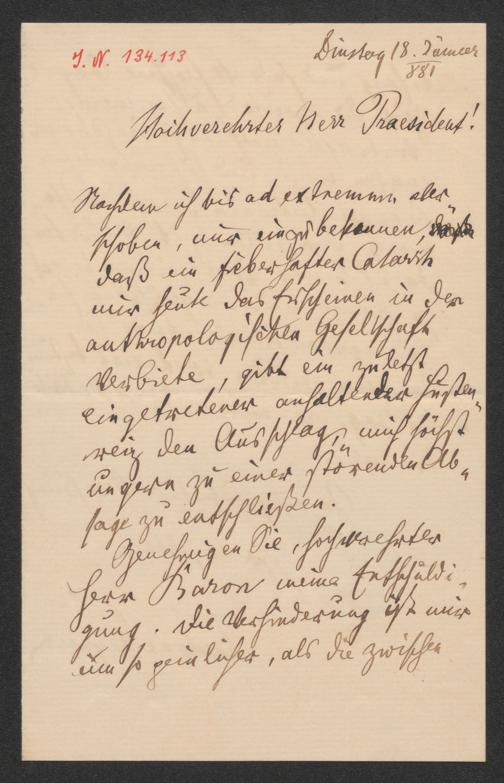 J. N. 134.113
Dinstag 18. Jänner
881
Hochverehrter Herr Praesident!
Nachdem ich bis ad extremum
schoben, mir einzubekennen,
daß ein fieberhafter Catarrh
mir heute das Erscheinen in der
anthropologischen Gesellschaft
verbiete, gibt ein zuletzt
eingetretener anhaltender Husten-
reiz den Ausschlag, mich höchst
ungern zu einer störenden Ab-
sage zu entschließen.
Genehmigen Sie, hochverehrter
Herr Baron meine Entschuldi-
gung. Die Verhinderung ist mir
um so peinlicher, als die zwischen